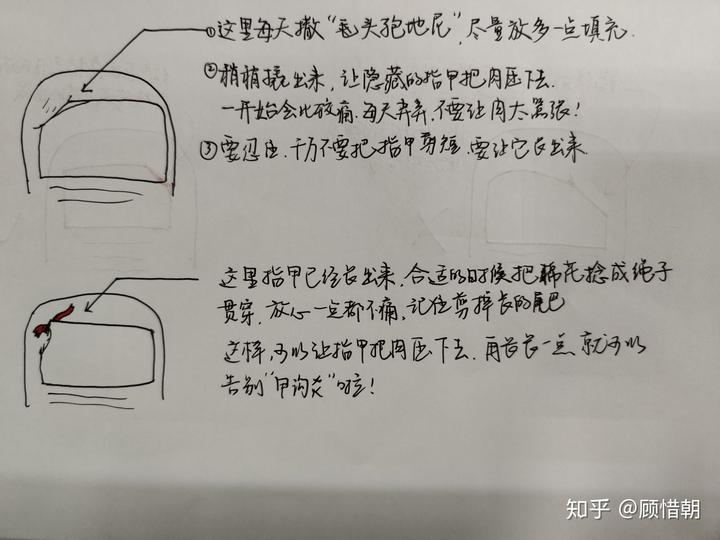 ①这里每天撒“毛头孢地尼”,尽量放多一点填充.
②稍稍撬出来,让隐藏的指甲把肉压下去.
一开始会比较痛.每天弄弄,不要让肉太嚣张!
③要忍住.千万不要把指甲剪短.要让它长出来.
这里指甲已经长出来,合适的时候把棉花捻成绳子
贯穿.放心一点都不痛,记住剪掉长的尾巴
这样,可以让指甲把肉压下去.再长长一点就可以
告别“甲沟炎”啦!
知乎 @顾惜朝